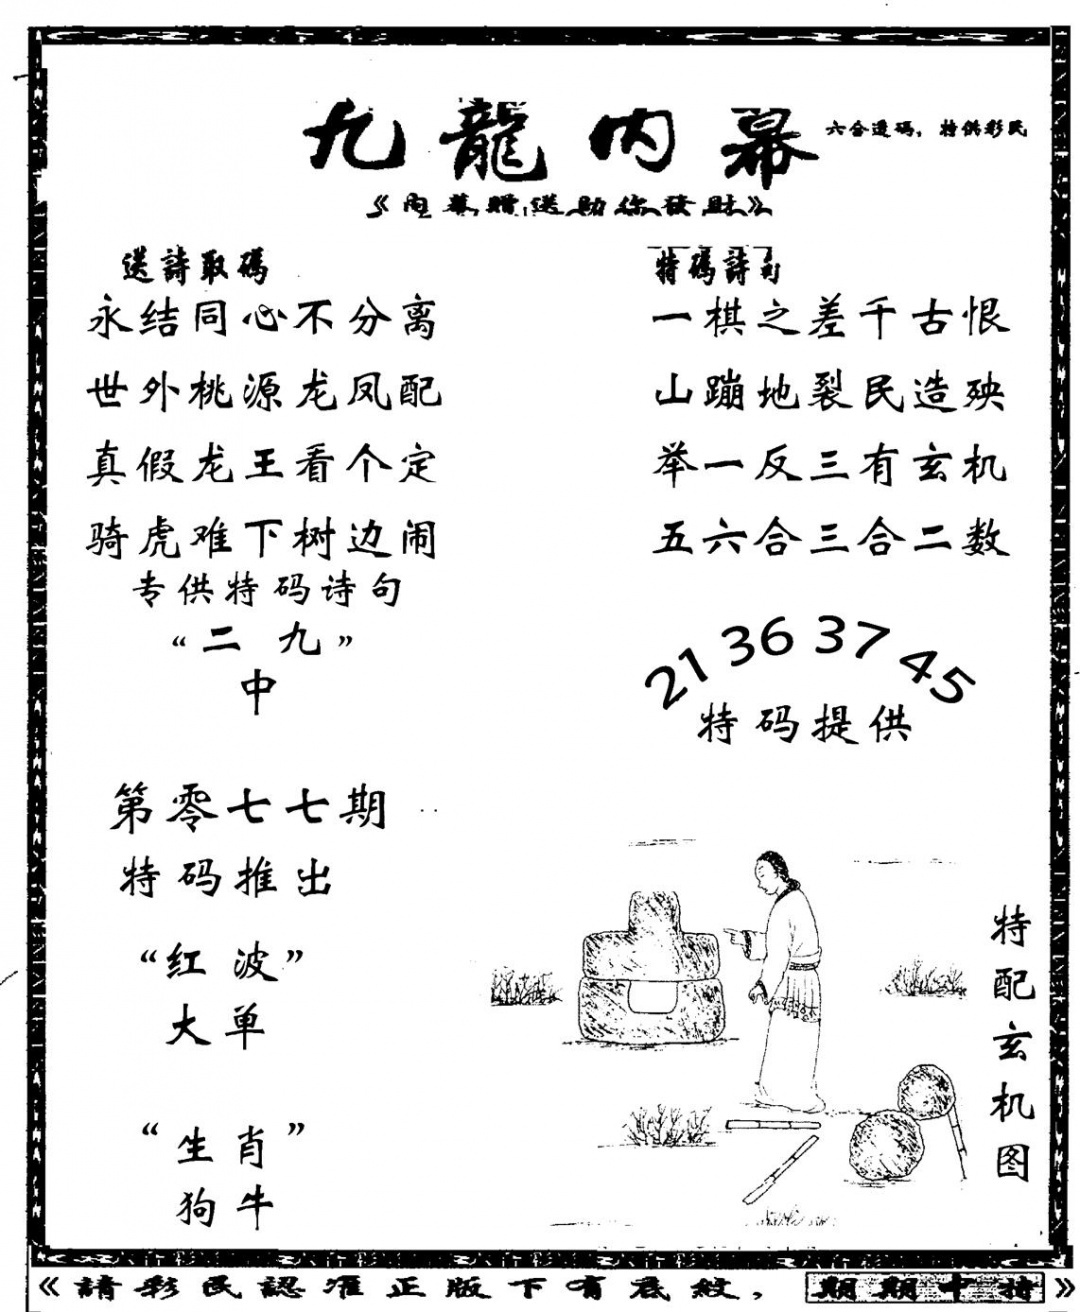 九龍内幕
六合透码，特供彩民
《内幕贈送助你發財》
送詩取碼
永结同心不分离
世外桃源龙凤配
真假龙王看个定
骑虎难下树边闹
专供特码诗句
“二九”
中
特碼詩句
一棋之差千古恨
山蹦地裂民造殃
举一反三有玄机
五六合三合二数
21 36 37 45
特码提供
第零七七期
特码推出
“红波”
大单
“生肖”
狗牛
特配玄机图
《請彩民認准正版下有底紋，期期中特》